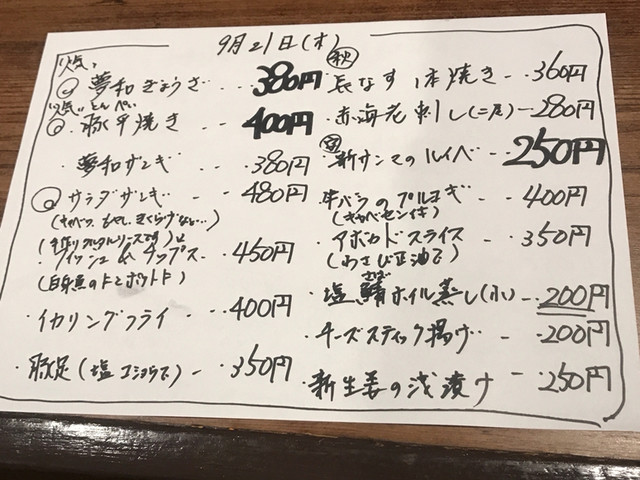 9月21日(木)
人気!
夢和ぎょうざ‥380円
人気! とんぺい
豚平焼き‥400円
・夢和ザンギ‥380円
サラダザンギ‥480円
(キャベツ、もやし、きくらげなど…)
(手作りタルタルソースです)
・フィッシュ&チップス‥450円
(白身魚のFとポテトF)
・イカリングフライ‥400円
・豚足(塩コショウ)-・350円
秋
長なす1本焼き-・360円
赤海老刺し(二尾)-280円
新サンマのルイベ-250円
牛バラのプルコギ-400円
(キャベセン付き)
アボカドスライス-・350円
(わさび正油)
さば
・塩鯖ホイル蒸し(小)-200円
・チーズスティック揚げ-・200円
・新生姜の浅漬け-・250円